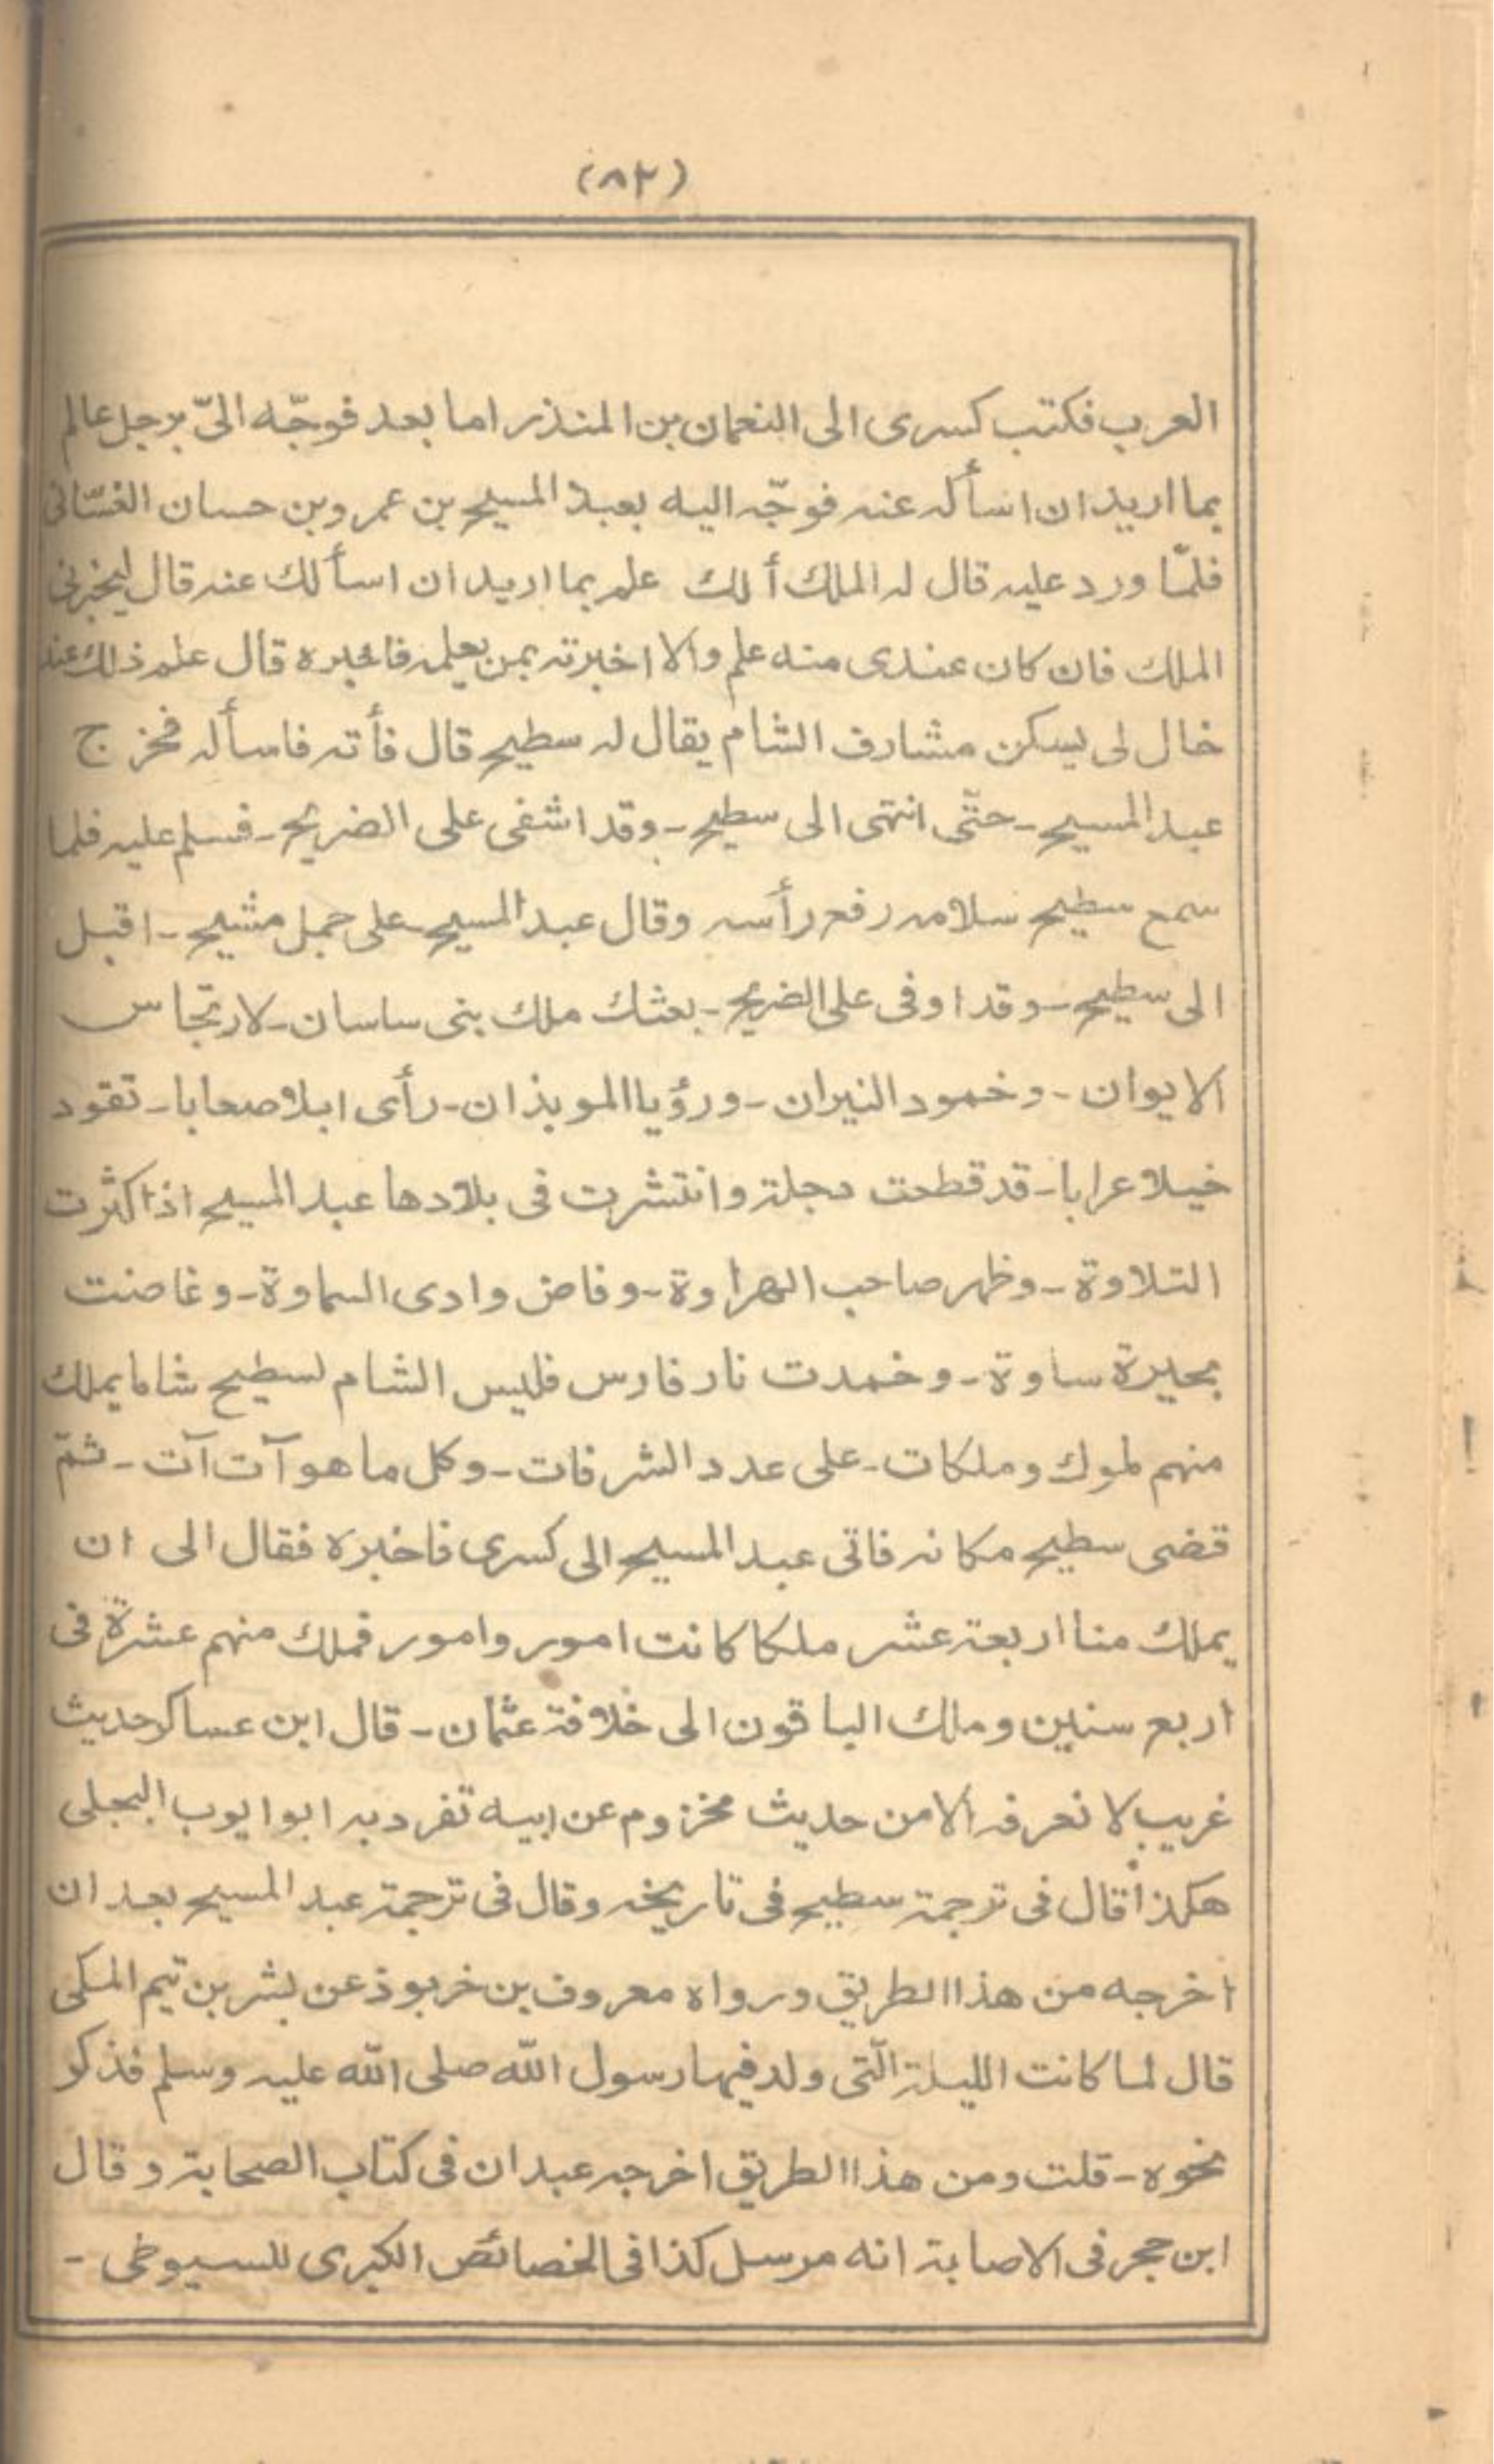 (٨٢)
العرب فكتب كسرى الى النعمان بن المنذر اما بعد فوجّه الىّ برجل عالم
بما اريد ان اسأله عنه فوجّه اليه بعبد المسيح بن عمرو بن حسان الغسّانى
فلمّا ورد عليه قال له الملك ألك علم بما اريد ان اسألك عنه قال ليخبرنى
الملك فان كان عندى منه علم والا اخبرته بمن يعلمه فاخبره قال علم ذلك عند
خال لى يسكن مشارف الشام يقال له سطيح قال فأته فاسأله فخرج
عبد المسيح - حتّى انتهى الى سطيح - وقد اشفى على الضريح - فسلم عليه فلما
سمع سطيح سلامه رفع رأسه وقال عبد المسيح على جمل مشيح - اقبل
الى سطيح - وقد اوفى على الضريح - بعثك ملك بنى ساسان - لارتجاس
الايوان - وخمود النيران - ورؤيا الموبذان - رأى ابلا صعابا - تقود
خيلا عرابا - قد قطعت دجلة وانتشرت فى بلادها عبد المسيح اذا كثرت
التلاوة - وظهر صاحب الهراوة - وفاض وادى السماوة - وغاضت
بحيرة ساوة - وخمدت نار فارس فليس الشام لسطيح شاما يملك
منهم لموك وملكات - على عدد الشرفات - وكل ما هو آت آت - ثمّ
قضى سطيح مكانه فاتى عبد المسيح الى كسرى فاخبره فقال الى ان
يملك منا اربعة عشر ملكا كانت امور وامور فملك منهم عشرة فى
اربع سنين وملك الباقون الى خلافة عثمان - قال ابن عساكر حديث
غريب لا نعرفه الا من حديث مخزوم عن ابيه تفرد به ابو ايوب البجلى
هكذا قال فى ترجمة سطيح فى تاريخه وقال فى ترجمة عبد المسيح بعد ان
اخرجه من هذا الطريق ورواه معروف بن خربوذ عن بشر بن تيم المكى
قال لما كانت الليلة الّتى ولد فيها رسول اللّه صلى اللّه عليه وسلم فذكر
نحوه - قلت ومن هذا الطريق اخرجه عبدان فى كتاب الصحابة وقال
ابن حجر فى الاصابة انه مرسل كذا فى الخصائص الكبرى للسيوطى -